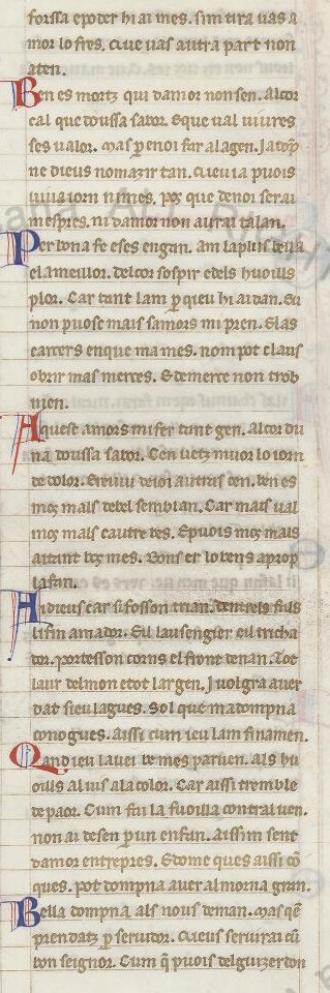 forssa epoder hi ai mes. sim tira uas a
mor lo fres. que uas autra part non
aten.
Ben es mortz qui damor non sen. Al cor
cal que doussa sabor. E que ual uiures
ses ualor. mas p enoi far ala gen. Ja dompn
ne dieus nom azir tan. Qieu ia puois
uiua iorn ni mes. pos que denoi serai
mespres. ni damor non aurai talan.
Per bona fe e ses engan. am la plus bella
e la meillor. del cor sospir e dels huoills
plor. Car tant lam p qeu hi ai dan. Eu
non puosc mais samors mi pren. E las
carcers en que ma mes. nom pot claus
obrir mas merces. E de merce non trob
nien.
Aquest amors mi fer tant gen. Al cor du
na doussa sabor. Cen uetz muor lo iorn
de dolor. E reuiu de ioi autras cen. ben es
mos mals de bel semblan. Car mais ual
mos mals cautre bes. E puois mos mals
aitant bos mes. Bons er lo bens apriop
lafan.
Ai dieus car si fosson trian. Dentrels fals
li fin amador. Eil lausengier eil tricha
dor. portesson corns el front denan. Tot
laur del mon e tot largen. J uolgra auer
dat sieu lagues. Sol que ma dompna
conogues. aissi cum ieu lam finamen.
Qand ieu la uei be mes paruen. Als hu
oills al uis a la color. Car aissi tremble
de paor. Cum fai la fuoilla contral uen.
non ai de sen p un enfan. aissim sent
damor entrepres. E dome ques aissi co
ques. pot dompna auer almorna gran.
Bella dompna als nous deman. mas qem
prendatz p seruidor. Qieus seruirai cu
bon seignor. Cum q puois del guizerdon